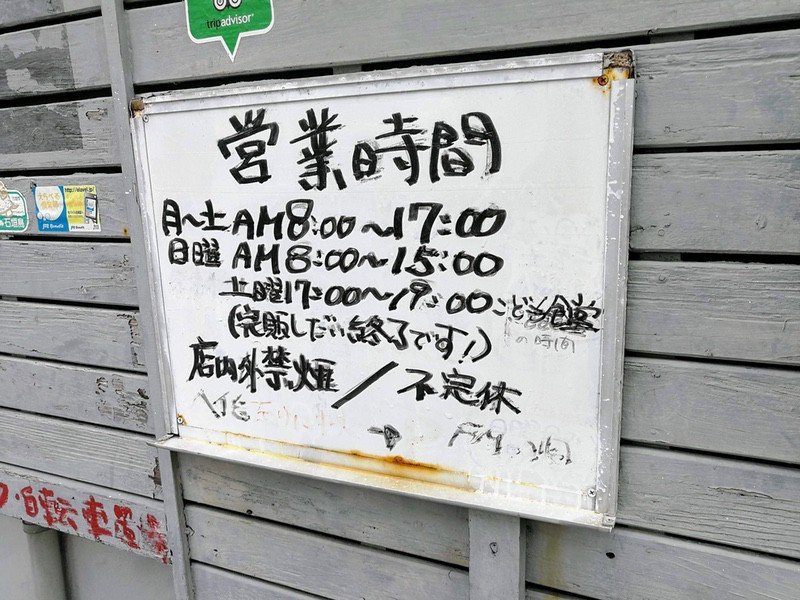 tripadvisor
営業時間
月〜土 AM8:00〜17:00
日曜 AM8:00〜15:00
土曜17:00〜19:00こども食堂
の時間
(完販しだい終了です!)
店内外禁煙／不定休
→
石垣島
自転車